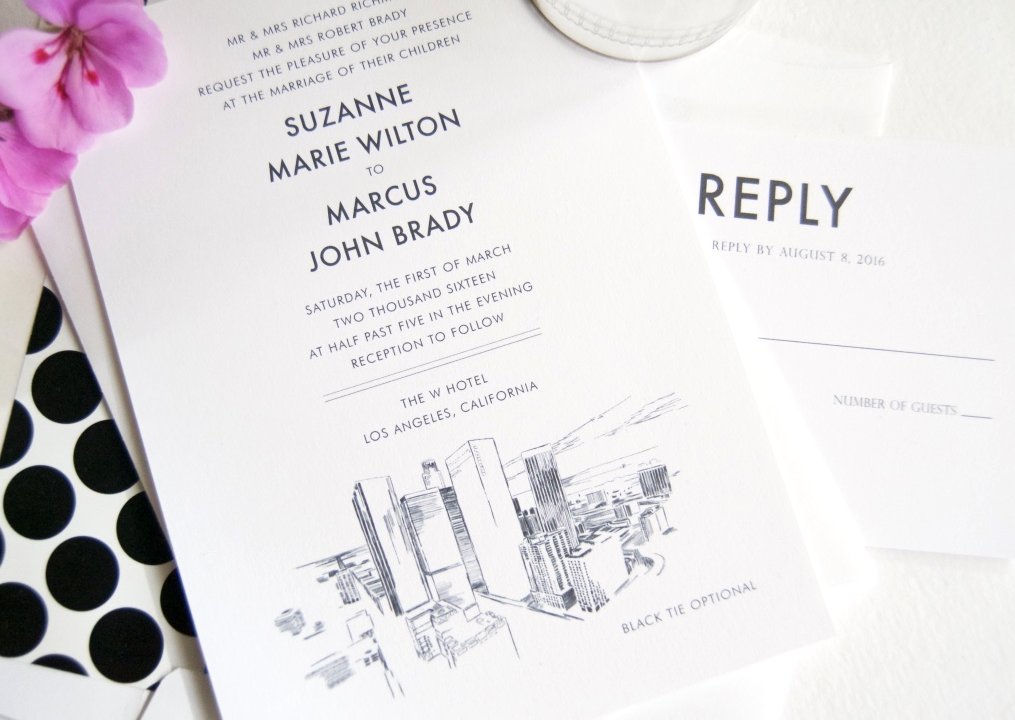 MR & MRS RICHARD
MR & MRS ROBERT BRADY
REQUEST THE PLEASURE OF YOUR PRESENCE
AT THE MARRIAGE OF THEIR CHILDREN
SUZANNE
MARIE WILTON
TO
MARCUS
JOHN BRADY
SATURDAY, THE FIRST OF MARCH
TWO THOUSAND SIXTEEN
AT HALF PAST FIVE IN THE EVENING
RECEPTION TO FOLLOW
THE W HOTEL
LOS ANGELES, CALIFORNIA
BLACK TIE OPTIONAL
REPLY
REPLY BY AUGUST 8, 2016
NUMBER OF GUESTS